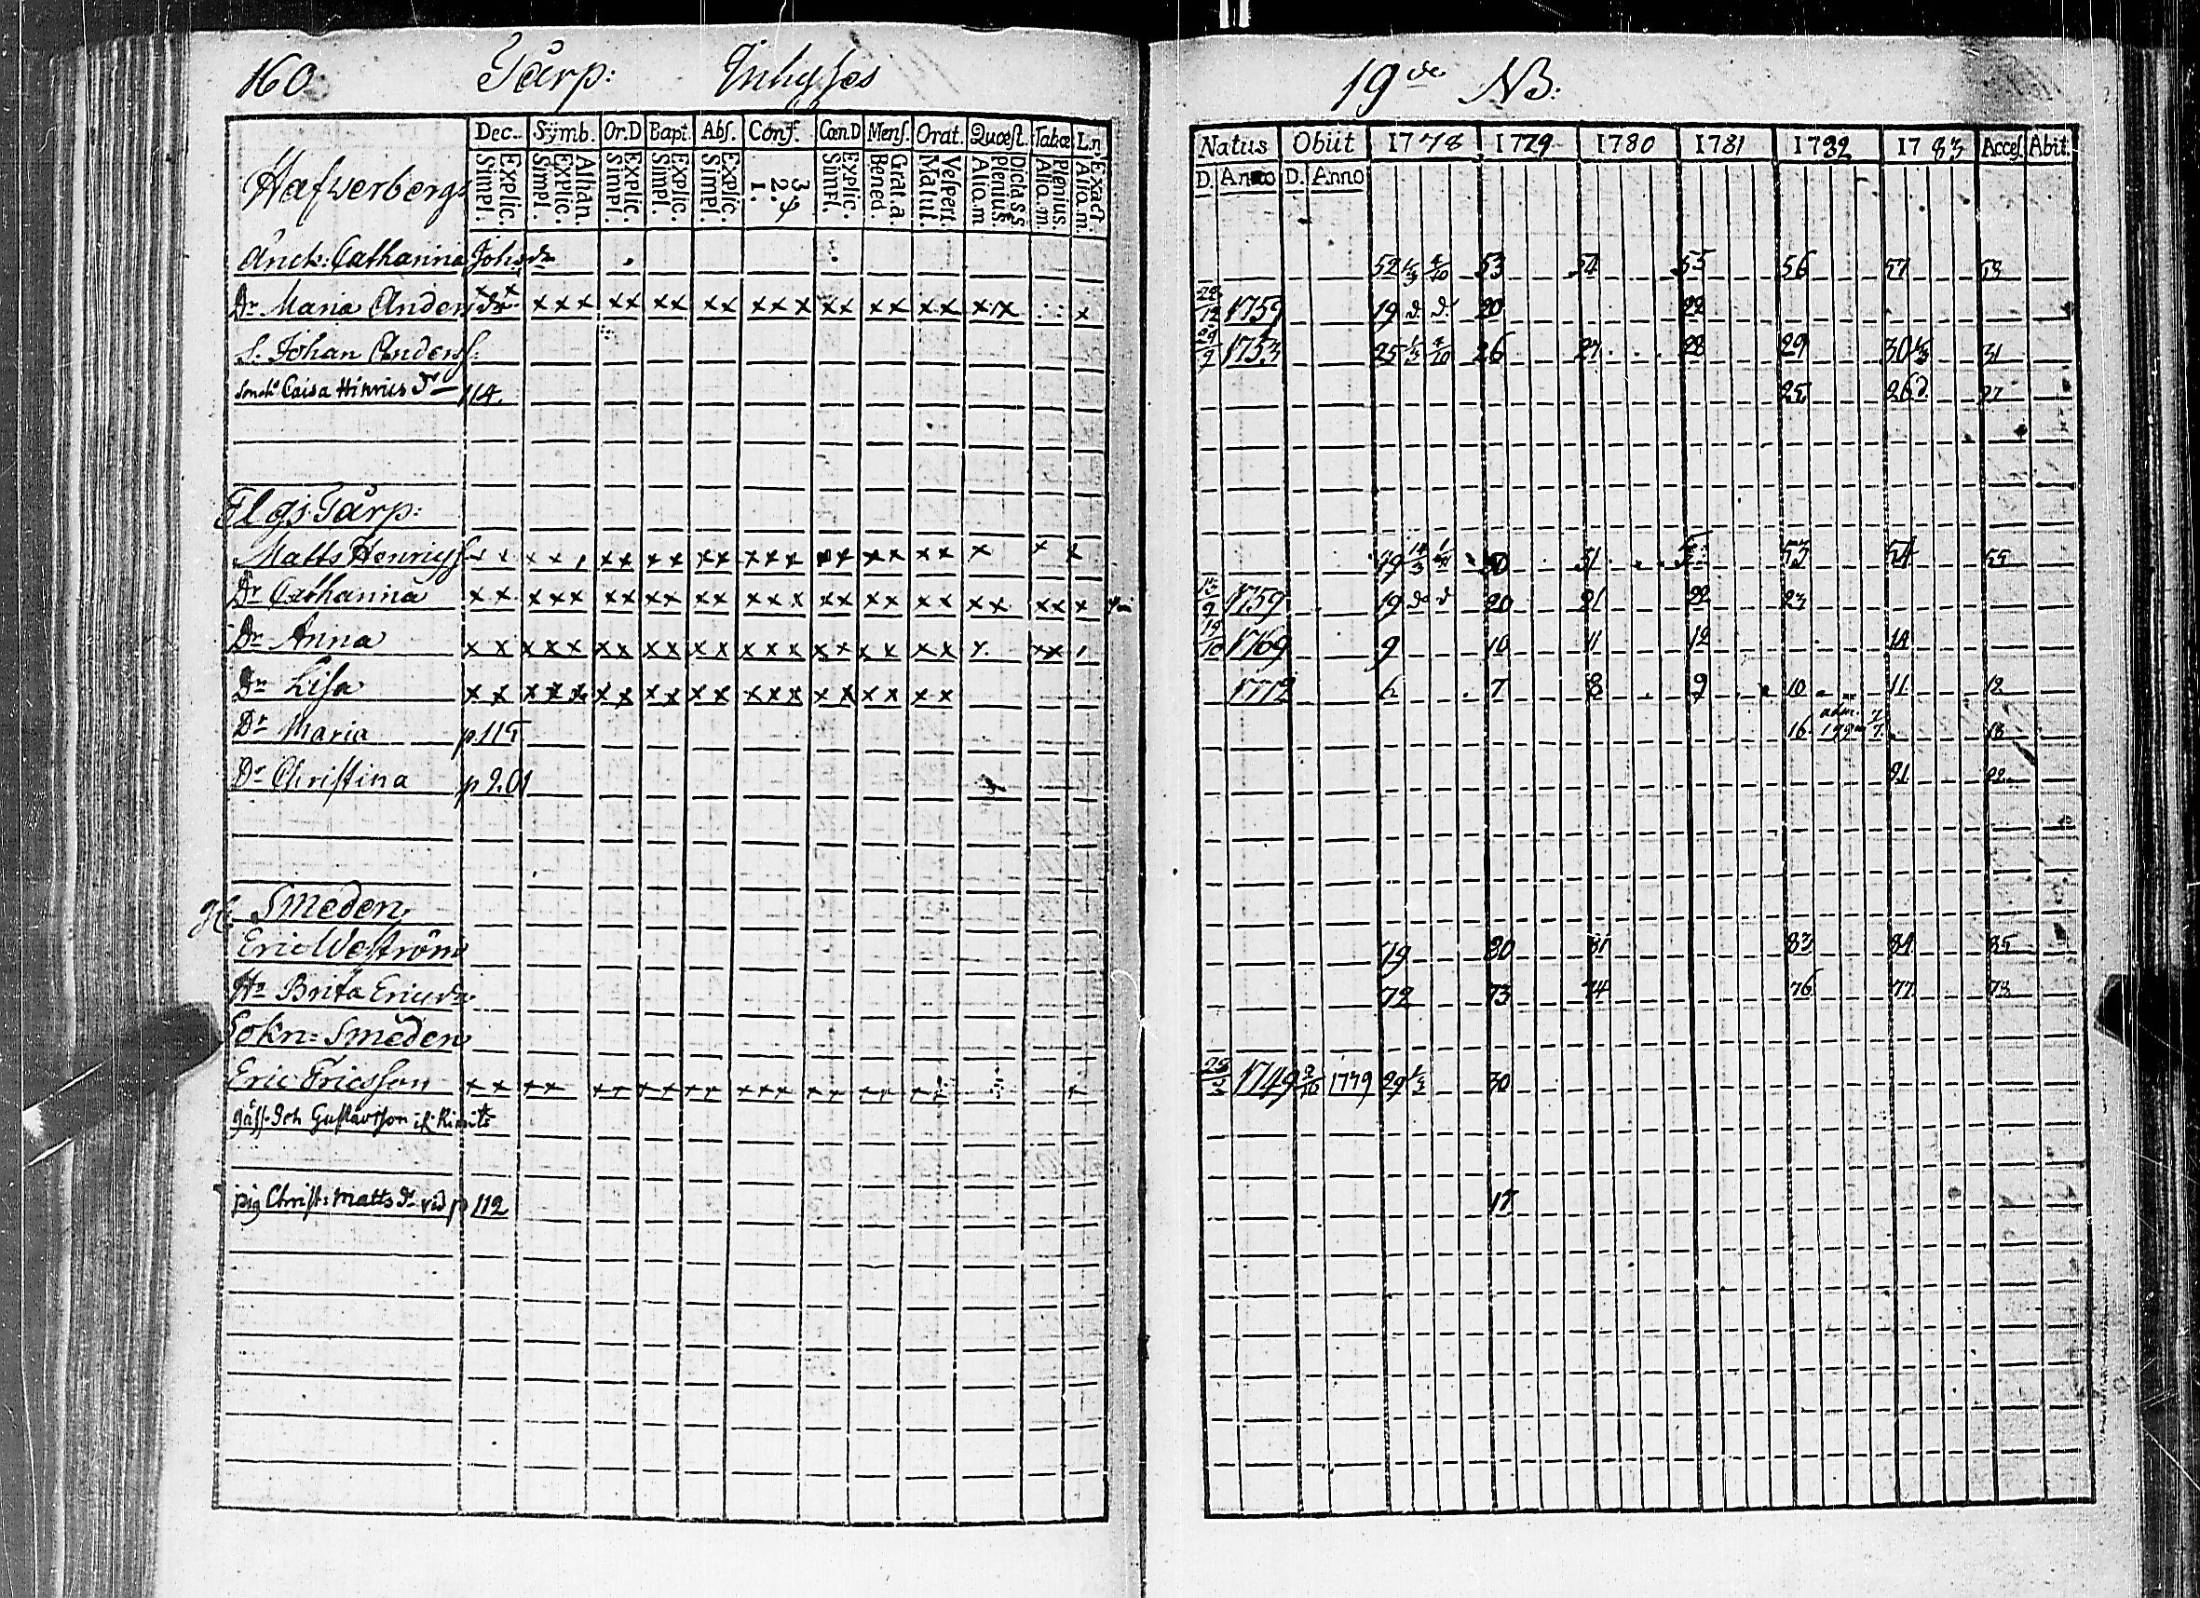 160 Tårp: Inhyses
19de NB:
Dec. Symb. Or.D Bapt. Abs. Conf. Cœn.D Mens. Orat. Quæst. Tabæ L.n
Explic. Simpl. Athan. Explic. Simpl. Explic. Simpl. Explic. Simpl. Explic. Simpl. 3. 2. 1. Explic. Simpl. Grat. a. Bened. Vespert. Matut. Dicta S S Plenius. Aliq. m Plenius. Aliq. m. Exact. Aliq. m.
Natus Obiit 1778 1779 1780 1781 1782 1783 Access. Abit.
D. Anno D. Anno
Hafverbergs
Änck: Catharina Johsdr 52 53 54 55 56 57 58
Dr Maria Anders dr x x x x x x x x x x x x x x x x x x x x x x 1759 19 d. d. 20 22
S. Johan Anders: 1753 25 26 27 28 29 30 31
Caisa Hinrics dr 114. 25 26 d. 27
Elgs Tårp:
Matts Henrics x x x x x x x x x x x x x x x x x x x x x x x 49 50 51 52 53 54 55
Dr Catharina x x x x x x x x x x x x x x x x x x x x x x x x x 13/9 1759 19 d d 20 21 22 23
Dr Anna x x x x x x x x x x x x x x x x x x x x x x x x 19/10 1769 9 10 11 12 14
Dr Lisa x x x x x x x x x x x x x x x x x x x x 1772 6 7 8 9 10 11 12
Dr Maria p. 115 16 18
Dr Christina p 201 21 22
Smeden
Eric Westrőm 79 80 81 83 84 85
Hu Brita Ericsdr 72 73 74 76 77 78
Sokn: Smeden
Eric Ericsson x x x x x x x x x x x x x x x x x x x x 1749 1779 29 30
gäss. Joh Gustavsson
pig Christ: Matts dr vid p 112 17